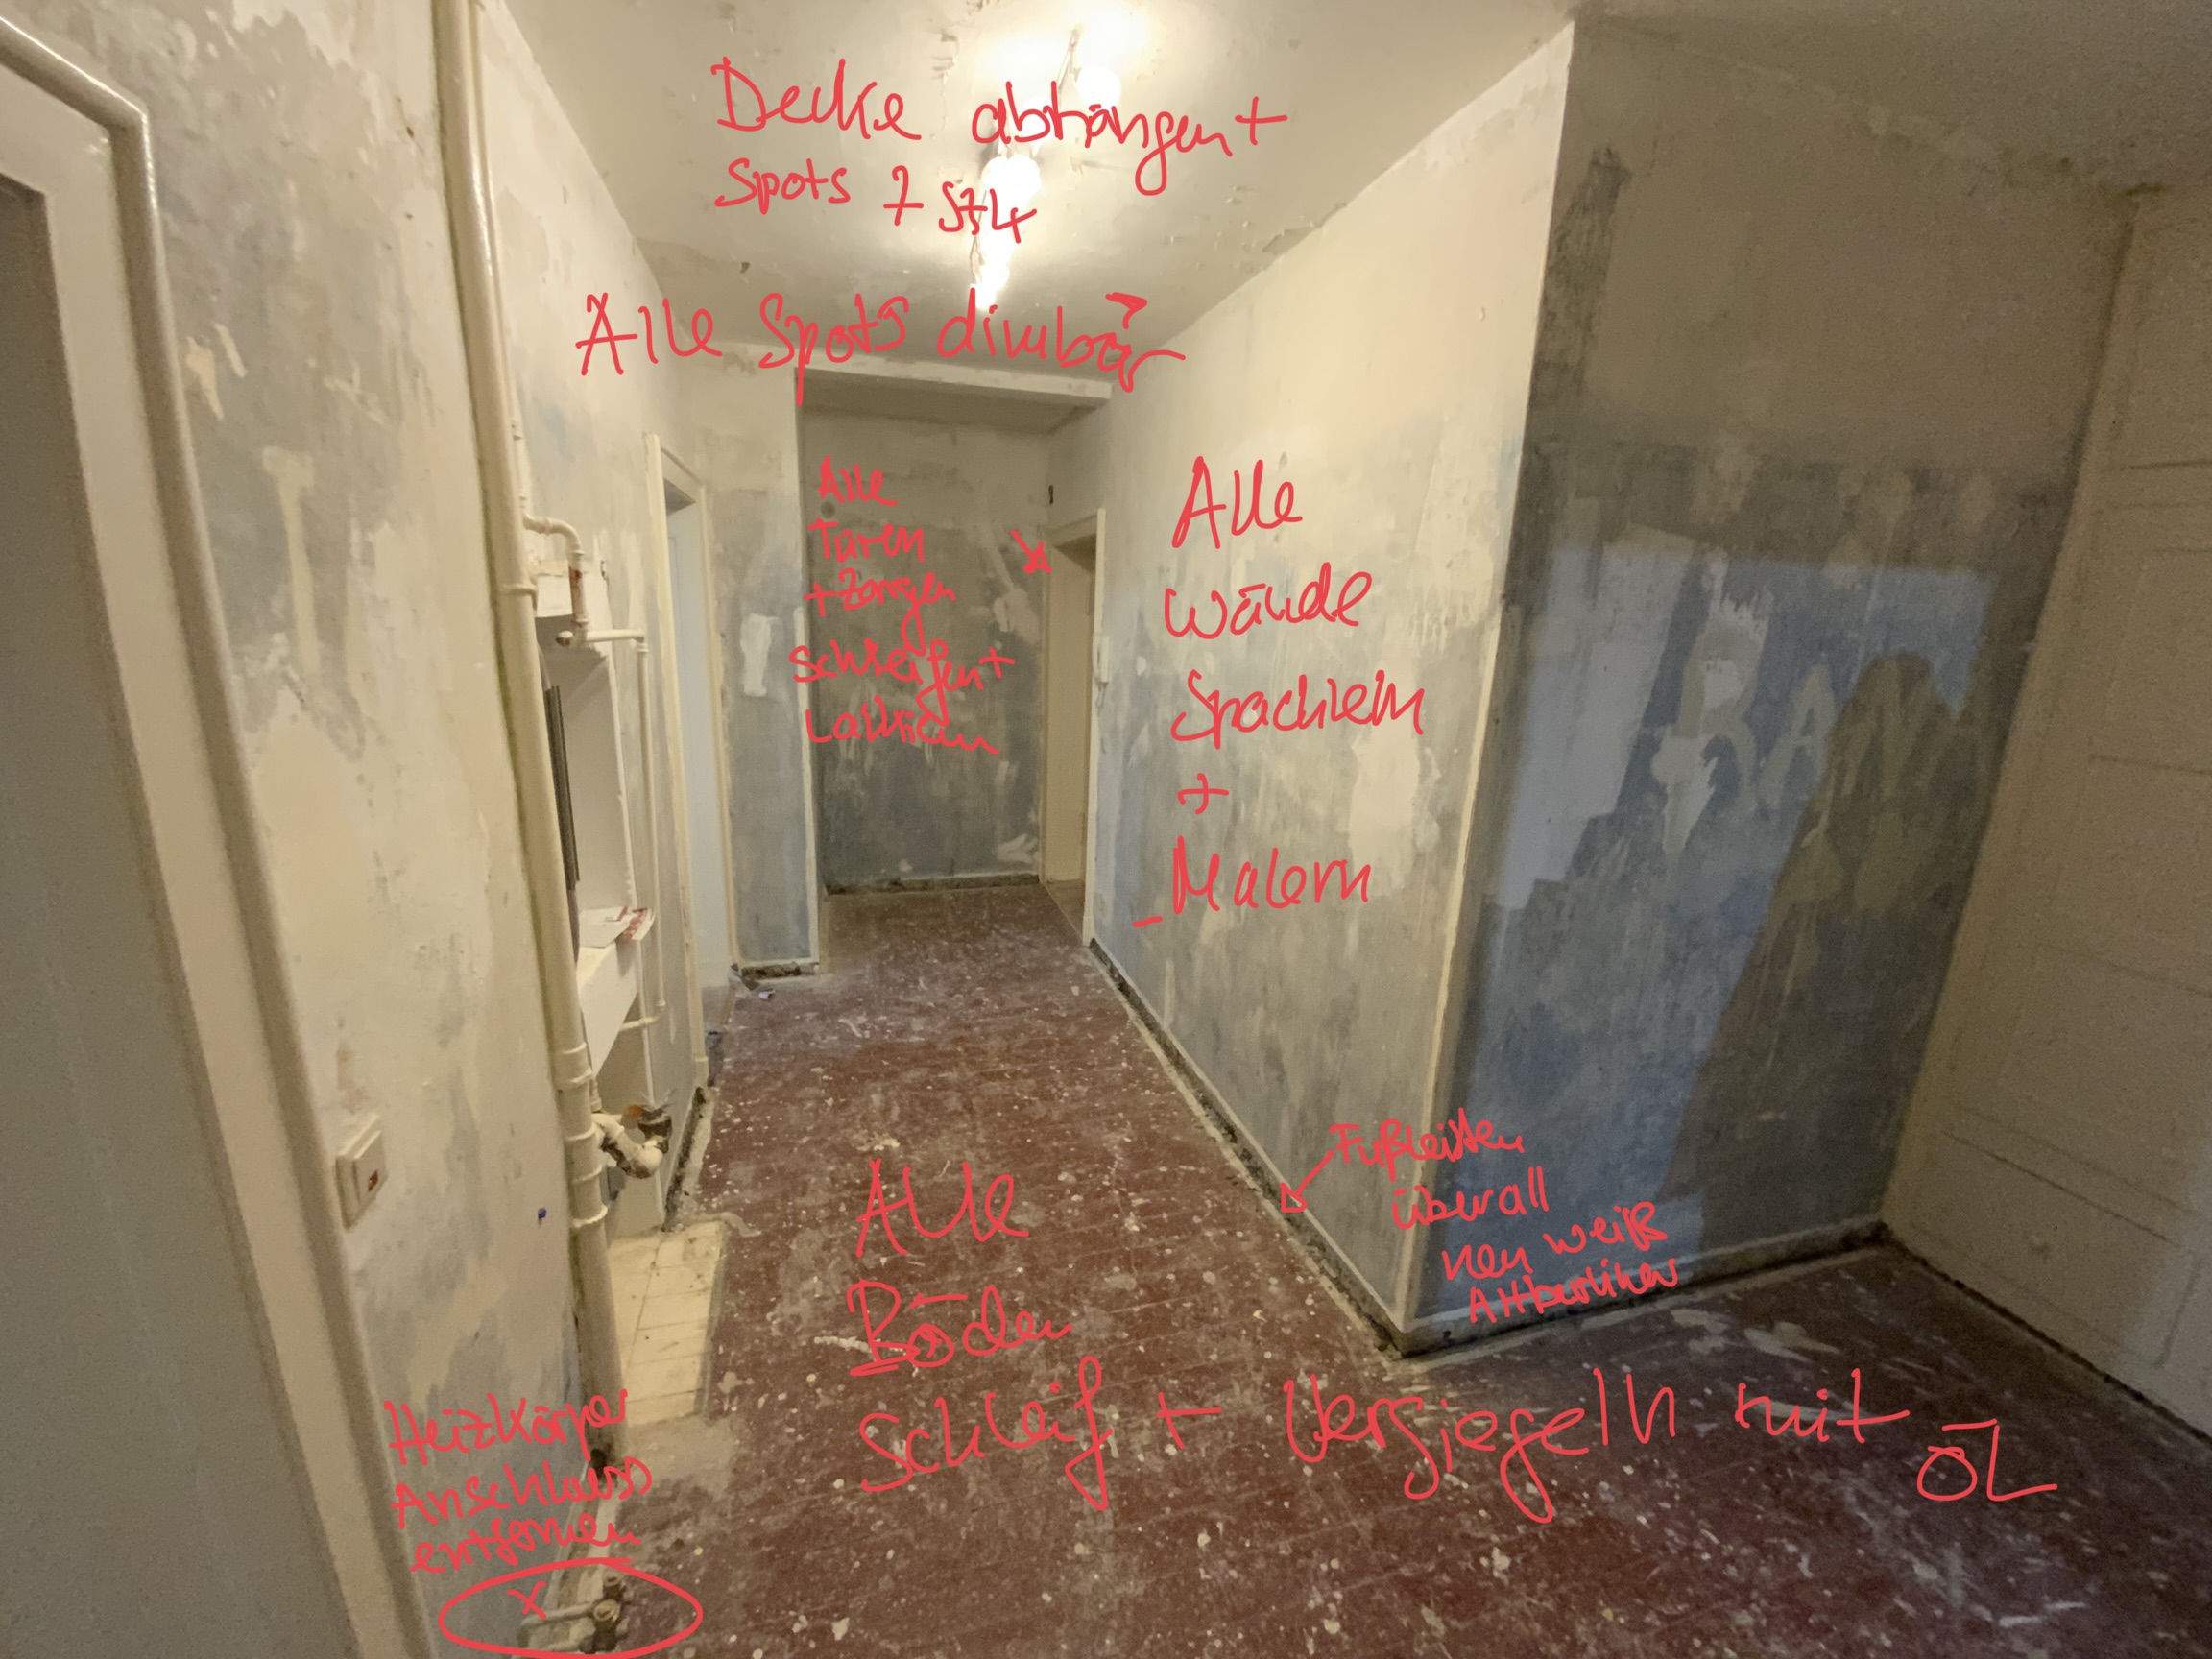 Decke abhängen +
Spots 7 Stk
Alle Spots dimbar
Alle
Türen
+ Zargen
schleifen +
Lackieren
Alle
Wände
Spachteln
+
Malern
Fußleisten
überall
neu weiß
Altberliner
Alle
Böden
Schleif + Versiegeln mit ÖL
Heizkörper
Anschluss
entfernen
X